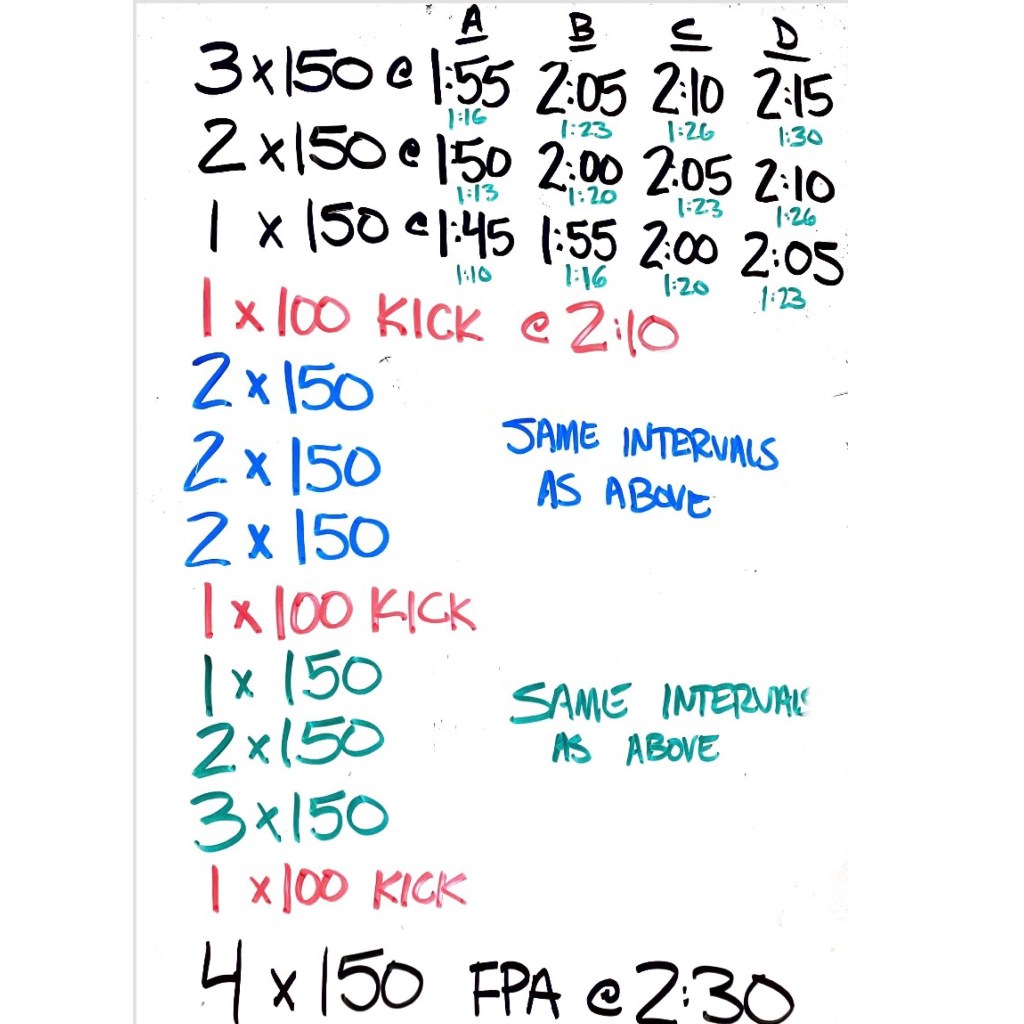 A B C D
3 x 150 @ 1:55 2:05 2:10 2:15
1:16 1:23 1:26 1:30
2 x 150 @ 1:50 2:00 2:05 2:10
1:13 1:20 1:23 1:26
1 x 150 @ 1:45 1:55 2:00 2:05
1:10 1:16 1:20 1:23
1 x 100 KICK @ 2:10
2 x 150
2 x 150
2 x 150
SAME INTERVALS
AS ABOVE
1 x 100 KICK
1 x 150
2 x 150
3 x 150
SAME INTERVALS
AS ABOVE
1 x 100 KICK
4 x 150 FPA @ 2:30